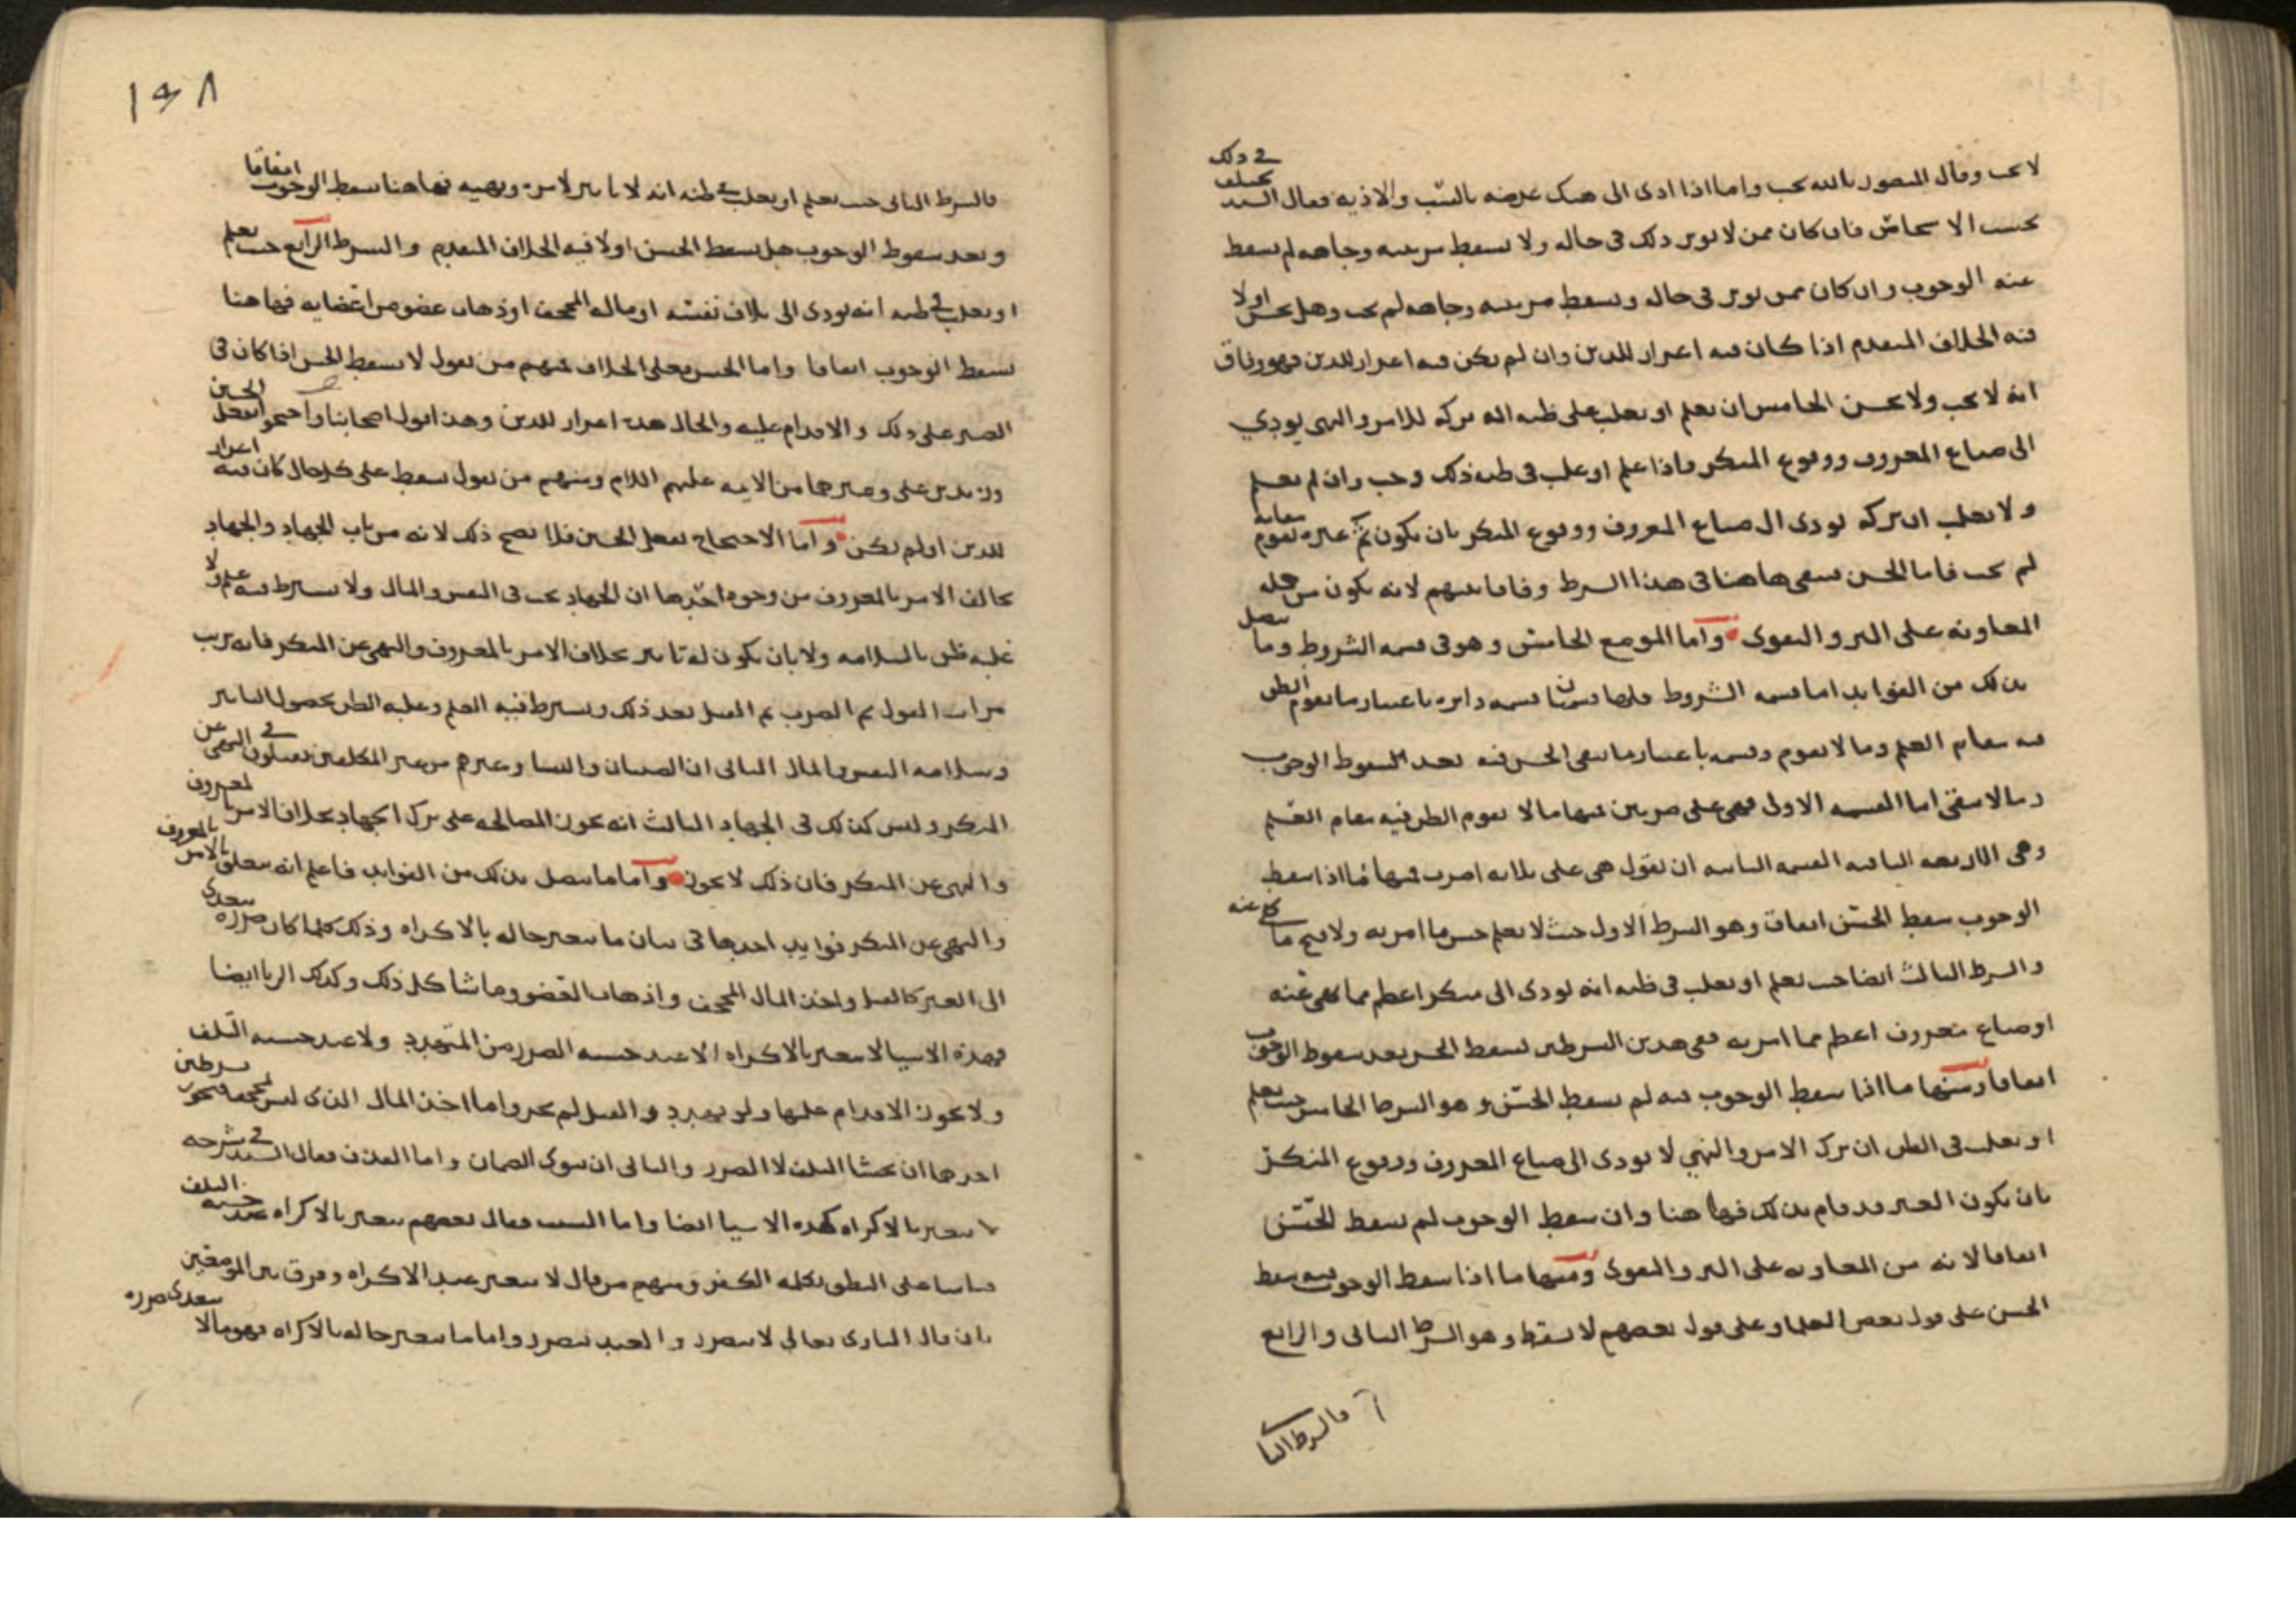 لا يجب وقال المنصور بالله يجب واما اذا ادى الى هتك عرضه بالسّب والاذيه فقال السيد يختلف في ذلك
بحسب الاشخاص فان كان ممن لا يوثر ذلك في حاله ولا يسقط مرتبته وجاهه لم يسقط
عنه الوجوب وان كان ممن يوثر في حاله ويسقط مرتبته وجاهه لم يجب وهل يحسن اولا
فيه الخلاف المتقدم اذا كان فيه اعزاز للدين وان لم يكن فيه اعزاز للدين فهو وفاق
انه لا يجب ولا يحسن الخامس ان يعلم او يغلب على ظنه ان تركه للامر والنهي يودي
الى ضياع المعروف ووقوع المنكر فاذا علم او غلب في ظنه ذلك وجب وان لم يعلم
ولا يغلب ان تركه يودى الى ضياع المعروف ووقوع المنكر بان يكون ثمّ غيره يقوم مقامه
لم يجب فاما الحسن فيبقى هاهنا في هذا الشرط وفاقا بينهم لانه يكون من جمله
المعاونه على البر والتقوى واما الموضع الخامس وهو في قسمه الشروط وما يتصل
بذلك من الفوايد اما قسمه الشروط فلها قسمتان قسمه دايره باعتبار ما يقوم الظن
فيه مقام العلم وما لا يقوم وقسمه باعتبار ما يبقى الحسن فيه بعد سقوط الوجوب
وما لا يبقى اما القسمه الاولى فهي على ضربين منها ما لا يقوم الظن فيه مقام العلم
وهي الاربعه الباقيه القسمه الثانيه ان نقول هي على ثلاثه اضرب منها ما اذا سقط
الوجوب سقط الحسن اتفاقا وهو الشرط الاول حيث لا يعلم حسن ما امر به ولا قبح ما نهى عنه
والشرط الثالث ايضا حيث يعلم او يغلب في ظنه انه يودى الى منكر اعظم مما نهى عنه
او ضياع معروف اعظم مما امر به ففي هذين الشرطين يسقط الحسن بعد سقوط الوجوب
اتفاقا ومنها ما اذا سقط الوجوب فيه لم يسقط الحسن وهو الشرط الخامس حيث يعلم
او يغلب في الظن ان ترك الامر والنهي لا يودى الى ضياع المعروف ووقوع المنكر
بان يكون الغير قد قام بذلك فهاهنا وان سقط الوجوب لم يسقط الحسن
اتفاقا لانه من المعاونه على البر والتقوى ومنها ما اذا سقط الوجوب فيه سقط
الحسن على قول بعض العلما وعلى قول بعضهم لا يسقط وهو الشرط الثاني والرابع
فالشرط الثا
١٤٨
فالشرط الثاني حيث يعلم او يغلب في ظنه انه لا تاثير لامره ونهيه فهاهنا سقط الوجوب اتفاقا
وبعد سقوط الوجوب هل يسقط الحسن اولا فيه الخلاف المتقدم والشرط الرابع حيث يعلم
او يغلب في ظنه انه يودى الى تلاف نفسه او ماله المجحف او ذهاب عضو من اعضايه فهاهنا
يسقط الوجوب اتفاقا واما الحسن فعلى الخلاف منهم من يقول لا يسقط الحسن اذا كان في
الصبر على ذلك والاقدام عليه والحال هذه اعزاز للدين وهذا قول اصحابنا واحتجوا بفعل الحسين
وزيد بن علي وغيرهما من الايمه عليهم السلام ومنهم من يقول يسقط على كل حال كان فيه اعزاز
للدين او لم يكن واما الاحتجاج بفعل الحسين فلا يصح ذلك لانه من باب الجهاد والجهاد
يخالف الامر بالمعروف من وجوه احدها ان الجهاد يجب في النفس والمال ولا يشترط فيه علم ولا
غلبه ظن بالسلامه ولا بان يكون له تاثير بخلاف الامر بالمعروف والنهي عن المنكر فانه يرتب
مراتب القول ثم الضرب ثم القتل بعد ذلك ويشترط فيه العلم وغلبه الظن بحصول التاثير
وسلامه النفس والمال الثاني ان الصبيان والنسا وغيرهم من غير المكلفين يقتلون في النهي عن
المنكر وليس كذلك في الجهاد الثالث انه يجوز المصالحه على ترك الجهاد بخلاف الامر بالمعروف
والنهي عن المنكر فان ذلك لا يجوز واما ما يتصل بذلك من الفوايد فاعلم انه يتعلق بالامر بالمعروف
والنهي عن المنكر فوايد احدها في بيان ما يتغير حاله بالاكراه وذلك كلما كان ضرره يتعدى
الى الغير كالقتل واخذ المال المجحف واذهاب العضو وما شاكل ذلك وكذلك الزنا ايضا
فهذه الاشيا لا يتغير بالاكراه لا عند خشيه الضرر من المتهدد ولا عند خشيه التلف
ولا يجوز الاقدام عليها ولو تهدد بالقتل لم يجز واما اخذ المال الذي ليس بمجحف فيجوز بشرطين
احدهما ان يخشا التلف لا الضرر والثاني ان ينوى الضمان واما القذف فقال السيد في شرحه
لا يتغير بالاكراه كهذه الاشيا ايضا واما السب فقال بعضهم يتغير بالاكراه عند خشيه التلف
قياسا على النطق بكلمه الكفر ومنهم من قال لا يتغير عند الاكراه وفرق بين الموضعين
بان قال البارى تعالى لا يتضرر والعبد يتضرر واما ما يتغير حاله بالاكراه فهو ما لا يتعدى ضرره